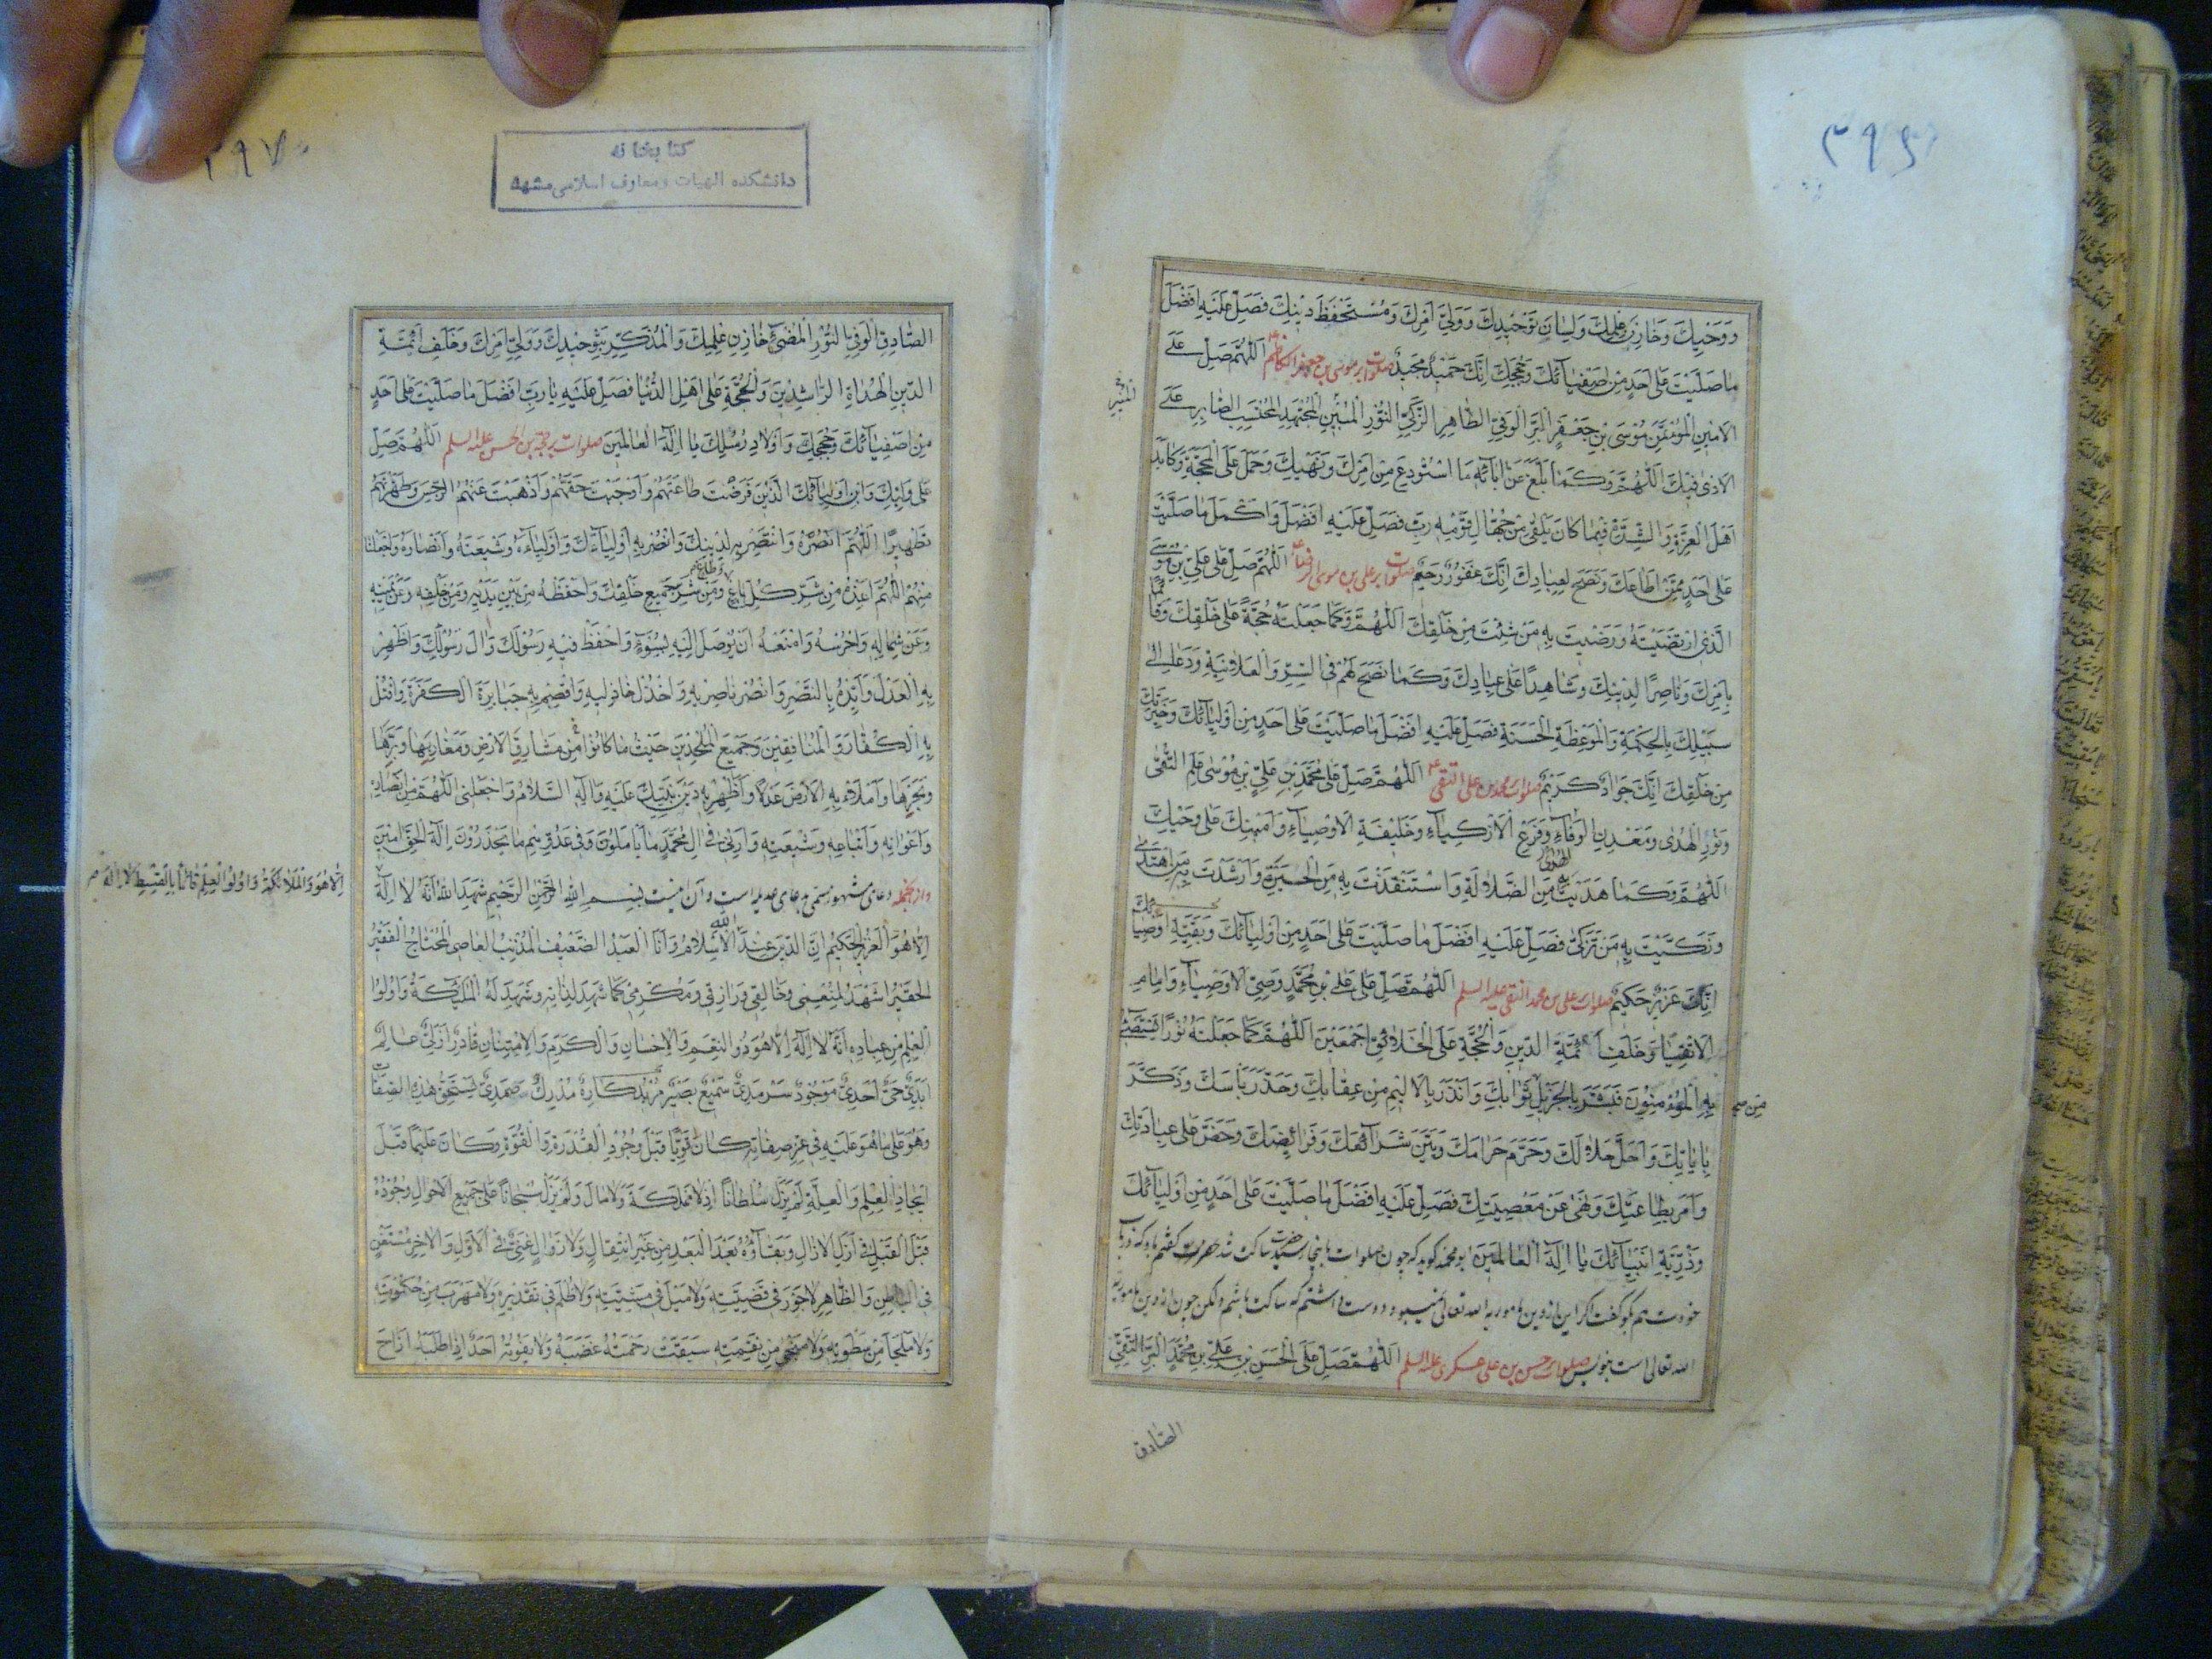 ٣٩٦
وَوَحْيِكَ وَخَازِنِ عِلْمِكَ وَلِسَانِ تَوْحِيدِكَ وَوَلِيِّ اَمْرِكَ وَمُسْتَحْفَظِ دِينِكَ فَصَلِّ عَلَيْهِ اَفْضَلَ
مَا صَلَّيْتَ عَلَى اَحَدٍ مِنْ اَصْفِيَائِكَ وَحُجَجِكَ اِنَّكَ حَمِيدٌ مَجِيدٌ صلوات بر موسى بن جعفر الكاظم اَللّٰهُمَّ صَلِّ عَلَى
الْاَمِينِ الْمُؤْتَمَنِ مُوسَى بْنِ جَعْفَرٍ الْبَرِّ الْوَفِيِّ الطَّاهِرِ الزَّكِيِّ النُّورِ الْمُبِينِ الْمُجْتَهِدِ الْمُحْتَسِبِ الصَّابِرِ عَلَى
الْمُنِيرِ
الْاَذٰى فِيكَ اَللّٰهُمَّ وَكَمَا بَلَّغَ عَنْ اٰبَائِهِ مَا اسْتُودِعَ مِنْ اَمْرِكَ وَنَهْيِكَ وَحَمَلَ عَلَى الْمَحَجَّةِ وَكَابَدَ
اَهْلَ الْعِزَّةِ وَالشِّدَّةِ فِيمَا كَانَ يَلْقٰى مِنْ جُهَّالِ قَوْمِهِ رَبِّ فَصَلِّ عَلَيْهِ اَفْضَلَ وَاَكْمَلَ مَا صَلَّيْتَ
عَلَى اَحَدٍ مِمَّنْ اَطَاعَكَ وَنَصَحَ لِعِبَادِكَ اِنَّكَ غَفُورٌ رَحِيمٌ صلوات بر على بن موسى الرضا اَللّٰهُمَّ صَلِّ عَلَى عَلِيِّ بْنِ مُوسَى
الَّذِي ارْتَضَيْتَهُ وَرَضَّيْتَ بِهِ مَنْ شِئْتَ مِنْ خَلْقِكَ اَللّٰهُمَّ وَكَمَا جَعَلْتَهُ حُجَّةً عَلَى خَلْقِكَ وَقَائِمًا
بِاَمْرِكَ وَنَاصِرًا لِدِينِكَ وَشَاهِدًا عَلَى عِبَادِكَ وَكَمَا نَصَحَ لَهُمْ فِي السِّرِّ وَالْعَلَانِيَةِ وَدَعَا اِلٰى
سَبِيلِكَ بِالْحِكْمَةِ وَالْمَوْعِظَةِ الْحَسَنَةِ فَصَلِّ عَلَيْهِ اَفْضَلَ مَا صَلَّيْتَ عَلَى اَحَدٍ مِنْ اَوْلِيَائِكَ وَخِيَرَتِكَ
مِنْ خَلْقِكَ اِنَّكَ جَوَادٌ كَرِيمٌ صلوات بر محمد بن على التقى اَللّٰهُمَّ صَلِّ عَلَى مُحَمَّدِ بْنِ عَلِيِّ بْنِ مُوسٰى عَلَمِ التُّقٰى
وَنُورِ الْهُدٰى وَمَعْدِنِ الْوَفَاءِ وَفَرْعِ الْاَزْكِيَاءِ وَخَلِيفَةِ الْاَوْصِيَاءِ وَاَمِينِكَ عَلَى وَحْيِكَ
اَللّٰهُمَّ وَكَمَا هَدَيْتَ بِهِ مِنَ الضَّلَالَةِ وَاسْتَنْقَذْتَ بِهِ مِنَ الْحَيْرَةِ وَاَرْشَدْتَ بِهِ مَنِ اهْتَدٰى
وَزَكَّيْتَ بِهِ مَنْ تَزَكّٰى فَصَلِّ عَلَيْهِ اَفْضَلَ مَا صَلَّيْتَ عَلَى اَحَدٍ مِنْ اَوْلِيَائِكَ وَبَقِيَّةِ اَوْصِيَائِكَ
اِنَّكَ عَزِيزٌ حَكِيمٌ صلوات بر على بن محمد النقى عليه السلم اَللّٰهُمَّ صَلِّ عَلَى عَلِيِّ بْنِ مُحَمَّدٍ وَصِيِّ الْاَوْصِيَاءِ وَاِمَامِ
الْاَتْقِيَاءِ وَخَلَفِ اَئِمَّةِ الدِّينِ وَالْحُجَّةِ عَلَى الْخَلَائِقِ اَجْمَعِينَ اَللّٰهُمَّ كَمَا جَعَلْتَهُ نُورًا يَسْتَضِيءُ
بِهِ الْمُؤْمِنُونَ فَبَشَّرَ بِالْجَزِيلِ مِنْ ثَوَابِكَ وَاَنْذَرَ بِالْاَلِيمِ مِنْ عِقَابِكَ وَحَذَّرَ بَأْسَكَ وَذَكَّرَ
بِاٰيَاتِكَ وَاَحَلَّ حَلَالَكَ وَحَرَّمَ حَرَامَكَ وَبَيَّنَ شَرَائِعَكَ وَفَرَائِضَكَ وَحَضَّ عَلَى عِبَادَتِكَ
وَاَمَرَ بِطَاعَتِكَ وَنَهٰى عَنْ مَعْصِيَتِكَ فَصَلِّ عَلَيْهِ اَفْضَلَ مَا صَلَّيْتَ عَلَى اَحَدٍ مِنْ اَوْلِيَائِكَ
وَذُرِّيَّةِ اَنْبِيَائِكَ يَا اِلٰهَ الْعَالَمِينَ ابو محمد گويد كه چون صلوات باينجا رسيد حضرت ساكت شد
خودت هم بگو گفت اگر اين از دين مأمور به الله تعالى نميبود دوست داشتم كه ساكت باشم وليكن چون از دين مأمور به
الله تعالى است بنويس صلوات بر حسن بن على عسكرى عليه السلم اَللّٰهُمَّ صَلِّ عَلَى الْحَسَنِ بْنِ عَلِيِّ بْنِ مُحَمَّدٍ الْبَرِّ التَّقِيِّ
الصادق
٣٩٧
كتابخانه
دانشكده الهيات ومعارف اسلامى مشهد
الصَّادِقِ الْوَفِيِّ النُّورِ الْمُضِيءِ خَازِنِ عِلْمِكَ وَالْمُذَكِّرِ بِتَوْحِيدِكَ وَوَلِيِّ اَمْرِكَ وَخَلَفِ اَئِمَّةِ
الدِّينِ الْهُدَاةِ الرَّاشِدِينَ وَالْحُجَّةِ عَلَى اَهْلِ الدُّنْيَا فَصَلِّ عَلَيْهِ يَا رَبِّ اَفْضَلَ مَا صَلَّيْتَ عَلَى اَحَدٍ
مِنْ اَصْفِيَائِكَ وَحُجَجِكَ وَاَوْلَادِ رُسُلِكَ يَا اِلٰهَ الْعَالَمِينَ صلوات بر حجة بن الحسن عليه السلم اَللّٰهُمَّ صَلِّ
عَلَى وَلِيِّكَ وَابْنِ اَوْلِيَائِكَ الَّذِينَ فَرَضْتَ طَاعَتَهُمْ وَاَوْجَبْتَ حَقَّهُمْ وَاَذْهَبْتَ عَنْهُمُ الرِّجْسَ وَطَهَّرْتَهُمْ
تَطْهِيرًا اَللّٰهُمَّ انْصُرْهُ وَانْتَصِرْ بِهِ لِدِينِكَ وَانْصُرْ بِهِ اَوْلِيَاءَكَ وَاَوْلِيَاءَهُ وَشِيعَتَهُ وَاَنْصَارَهُ وَاجْعَلْنَا
مِنْهُمْ اَللّٰهُمَّ اَعِذْهُ مِنْ شَرِّ كُلِّ بَاغٍ وَطَاغٍ وَمِنْ شَرِّ جَمِيعِ خَلْقِكَ وَاحْفَظْهُ مِنْ بَيْنِ يَدَيْهِ وَمِنْ خَلْفِهِ وَعَنْ يَمِينِهِ
وَعَنْ شِمَالِهِ وَاحْرُسْهُ وَامْنَعْهُ اَنْ يُوصَلَ اِلَيْهِ بِسُوءٍ وَاحْفَظْ فِيهِ رَسُولَكَ وَاٰلَ رَسُولِكَ وَاَظْهِرْ
بِهِ الْعَدْلَ وَاَيِّدْهُ بِالنَّصْرِ وَانْصُرْ نَاصِرِيهِ وَاخْذُلْ خَاذِلِيهِ وَاقْصِمْ بِهِ جَبَابِرَةَ الْكَفَرَةِ وَاقْتُلْ
بِهِ الْكُفَّارَ وَالْمُنَافِقِينَ وَجَمِيعَ الْمُلْحِدِينَ حَيْثُ مَا كَانُوا مِنْ مَشَارِقِ الْاَرْضِ وَمَغَارِبِهَا وَبَرِّهَا
وَبَحْرِهَا وَامْلَأْ بِهِ الْاَرْضَ عَدْلًا وَاَظْهِرْ بِهِ دِينَ نَبِيِّكَ عَلَيْهِ وَاٰلِهِ السَّلَامُ وَاجْعَلْنِي اَللّٰهُمَّ مِنْ اَنْصَارِهِ
وَاَعْوَانِهِ وَاَتْبَاعِهِ وَشِيعَتِهِ وَاَرِنِي فِي اٰلِ مُحَمَّدٍ مَا يَأْمُلُونَ وَفِي عَدُوِّهِمْ مَا يَحْذَرُونَ اِلٰهَ الْحَقِّ اٰمِينَ
واز جمله دعاى مشهور مسمى به دعاى عديله است وآن اينست بِسْمِ اللّٰهِ الرَّحْمٰنِ الرَّحِيمِ شَهِدَ اللّٰهُ اَنَّهُ لَا اِلٰهَ
اِلَّا هُوَ وَالْمَلَائِكَةُ وَاُولُوا الْعِلْمِ قَائِمًا بِالْقِسْطِ لَا اِلٰهَ
اِلَّا هُوَ الْعَزِيزُ الْحَكِيمُ اِنَّ الدِّينَ عِنْدَ اللّٰهِ الْاِسْلَامُ وَاَنَا الْعَبْدُ الضَّعِيفُ الْمُذْنِبُ الْعَاصِي الْمُحْتَاجُ الْفَقِيرُ
الْحَقِيرُ اَشْهَدُ لِمُنْعِمِي وَخَالِقِي وَرَازِقِي وَمُكْرِمِي كَمَا شَهِدَ لِذَاتِهِ وَشَهِدَ لَهُ الْمَلٰئِكَةُ وَاُولُوا
الْعِلْمِ مِنْ عِبَادِهِ اَنَّهُ لَا اِلٰهَ اِلَّا هُوَ ذُو النِّعَمِ وَالْاِحْسَانِ وَالْكَرَمِ وَالْاِمْتِنَانِ قَادِرٌ اَزَلِيٌّ عَالِمٌ
اَبَدِيٌّ حَيٌّ اَحَدِيٌّ مَوْجُودٌ سَرْمَدِيٌّ سَمِيعٌ بَصِيرٌ مُرِيدٌ كَارِهٌ مُدْرِكٌ صَمَدِيٌّ يَسْتَحِقُّ هٰذِهِ الصِّفَاتِ
وَهُوَ عَلَى مَا هُوَ عَلَيْهِ فِي عِزِّ صِفَاتِهِ كَانَ قَوِيًّا قَبْلَ وُجُودِ الْقُدْرَةِ وَالْقُوَّةِ وَكَانَ عَلِيمًا قَبْلَ
اِيجَادِ الْعِلْمِ وَالْعِلَّةِ لَمْ يَزَلْ سُلْطَانًا اِذْ لَا مَمْلَكَةَ وَلَا مَالَ وَلَمْ يَزَلْ سُبْحَانًا عَلَى جَمِيعِ الْاَحْوَالِ وُجُودُهُ
قَبْلَ الْقَبْلِ فِي اَزَلِ الْاٰزَالِ وَبَقَاؤُهُ بَعْدَ الْبَعْدِ مِنْ غَيْرِ انْتِقَالٍ وَلَا زَوَالٍ غَنِيٌّ فِي الْاَوَّلِ وَالْاٰخِرِ مُسْتَغْنٍ
فِي الْبَاطِنِ وَالظَّاهِرِ لَا جَوْرَ فِي قَضِيَّتِهِ وَلَا مَيْلَ فِي مَشِيَّتِهِ وَلَا ظُلْمَ فِي تَقْدِيرِهِ وَلَا مَهْرَبَ مِنْ حُكُومَتِهِ
وَلَا مَلْجَأَ مِنْ سَطْوَتِهِ وَلَا مَنْجٰى مِنْ نَقِمَتِهِ سَبَقَتْ رَحْمَتُهُ غَضَبَهُ وَلَا يَفُوتُهُ اَحَدٌ اِذَا طَلَبَهُ اَزَاحَ